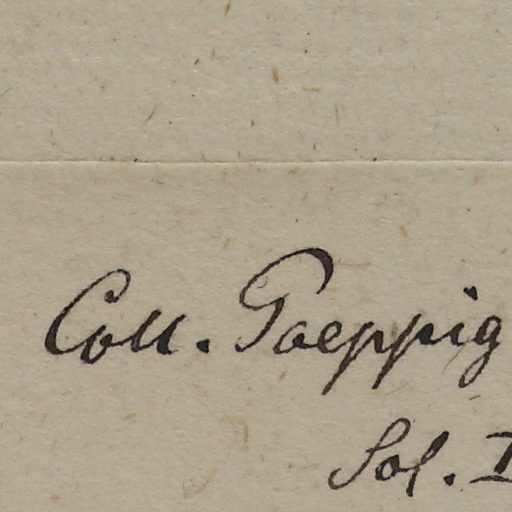 Coll. Poeppig
Sol. I